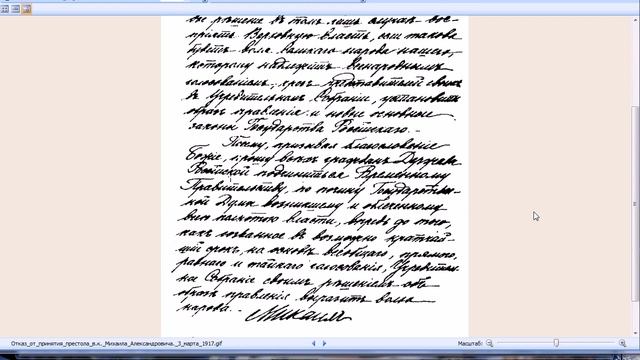 рѣшеніе въ томъ лишь случаѣ вос-
пріять Верховную власть, если такова
будетъ воля великаго народа нашего,
которому надлежитъ всенароднымъ
голосованіемъ, чрезъ представителей своихъ
въ Учредительномъ Собраніи, установить
образъ правленія и новые основные
законы Государства Россійскаго.
Посему, призывая благословеніе
Божіе, прошу всѣхъ гражданъ Державы
Россійской подчиниться Временному
Правительству, по почину Государствен-
ной Думы возникшему и облеченному
всею полнотою власти, впредь до того,
какъ созванное въ возможно кратчай-
шій срокъ, на основѣ всеобщаго, прямого,
равнаго и тайнаго голосованія, Учредитель-
ное Собраніе своимъ рѣшеніемъ объ
образѣ правленія выразитъ волю
народа.
Михаилъ
Отказ_от_принятия_престола_в.к._Михаила_Александровича._3_марта_1917.gif
Масштаб: